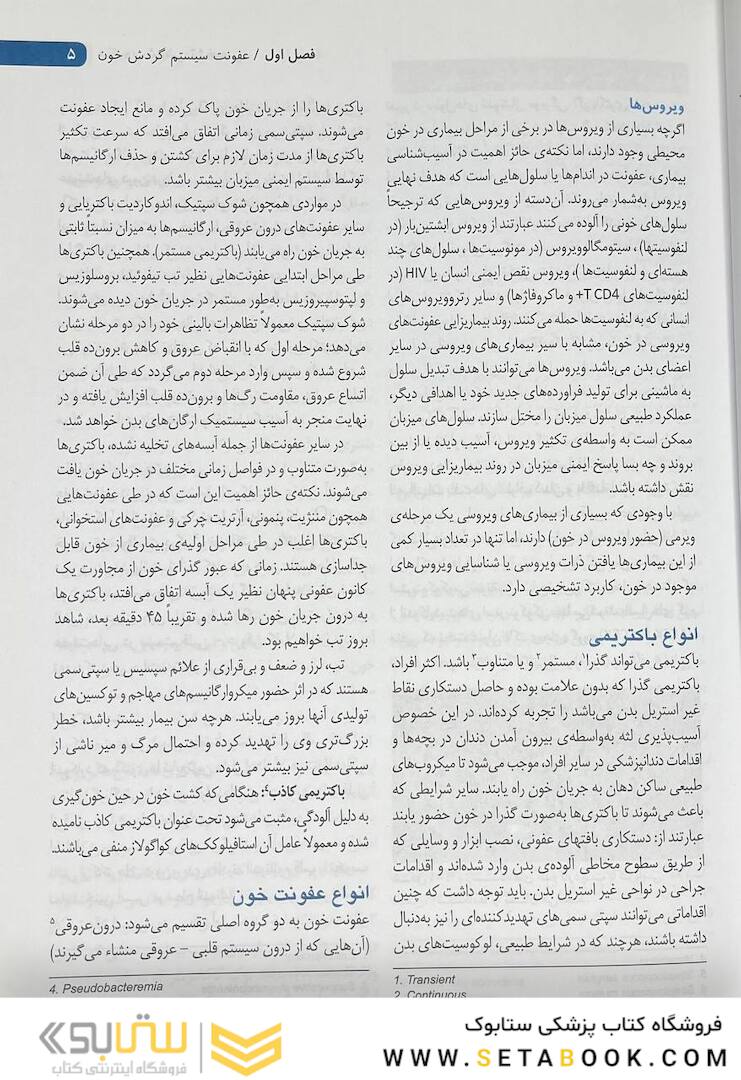 فصل اول / عفونت سیستم گردش خون
۵
ویروس‌ها
اگرچه بسیاری از ویروس‌ها در برخی از مراحل بیماری در خون
محیطی وجود دارند، اما نکته‌ی حائز اهمیت در آسیب‌شناسی
بیماری، عفونت در اندام‌ها یا سلول‌هایی است که هدف نهایی
ویروس به‌شمار می‌روند. آن‌دسته از ویروس‌هایی که ترجیحاً
سلول‌های خونی را آلوده می‌کنند عبارتند از ویروس اپشتین‌بار (در
لنفوسیتها) ، سیتومگالوویروس (در مونوسیت‌ها ، سلول‌های چند
هسته‌ای و لنفوسیت‌ها )، ویروس نقص ایمنی انسان یا HIV (در
لنفوسیت‌های T CD4+ و ماکروفاژها) و سایر رتروویروس‌های
انسانی که به لنفوسیت‌ها حمله می‌کنند. روند بیماریزایی عفونت‌های
ویروسی در خون، مشابه با سیر بیماری‌های ویروسی در سایر
اعضای بدن می‌باشد. ویروس‌ها می‌توانند با هدف تبدیل سلول
به ماشینی برای تولید فراورده‌های جدید خود یا اهدافی دیگر،
عملکرد طبیعی سلول میزبان را مختل سازند. سلول‌های میزبان
ممکن است به واسطه‌ی تکثیر ویروس، آسیب دیده یا از بین
بروند و چه بسا پاسخ ایمنی میزبان در روند بیماریزایی ویروس
نقش داشته باشد.
با وجودی که بسیاری از بیماری‌های ویروسی یک مرحله‌ی
ویرمی (حضور ویروس در خون) دارند، اما تنها در تعداد بسیار کمی
از این بیماری‌ها یافتن ذرات ویروسی یا شناسایی ویروس‌های
موجود در خون، کاربرد تشخیصی دارد.
انواع باکتریمی
باکتریمی می‌تواند گذرا۱، مستمر۲ و یا متناوب۳ باشد. اکثر افراد،
باکتریمی گذرا که بدون علامت بوده و حاصل دستکاری نقاط
غیر استریل بدن می‌باشد را تجربه کرده‌اند. در این خصوص
آسیب‌پذیری لثه به‌واسطه‌ی بیرون آمدن دندان در بچه‌ها و
اقدامات دندانپزشکی در سایر افراد، موجب می‌شود تا میکروب‌های
طبیعی ساکن دهان به جریان خون راه یابند. سایر شرایطی که
باعث می‌شوند تا باکتری‌ها به‌صورت گذرا در خون حضور یابند
عبارتند از: دستکاری بافتهای عفونی، نصب ابزار و وسایلی که
از طریق سطوح مخاطی آلوده‌ی بدن وارد شده‌اند و اقدامات
جراحی در نواحی غیر استریل بدن. باید توجه داشت که چنین
اقداماتی می‌توانند سپتی سمی‌های تهدیدکننده‌ای را نیز به‌دنبال
داشته باشند، هرچند که در شرایط طبیعی، لوکوسیت‌های بدن
1. Transient
2. Continuous
باکتری‌ها را از جریان خون پاک کرده و مانع ایجاد عفونت
می‌شوند. سپتی‌سمی زمانی اتفاق می‌افتد که سرعت تکثیر
باکتری‌ها از مدت زمان لازم برای کشتن و حذف ارگانیسم‌ها
توسط سیستم ایمنی میزبان بیشتر باشد.
در مواردی همچون شوک سپتیک، اندوکاردیت باکتریایی و
سایر عفونت‌های درون عروقی، ارگانیسم‌ها به میزان نسبتاً ثابتی
به جریان خون راه می‌یابند (باکتریمی مستمر). همچنین باکتری‌ها
طی مراحل ابتدایی عفونت‌هایی نظیر تب تیفوئید، بروسلوزیس
و لپتوسپیروزیس به‌طور مستمر در جریان خون دیده می‌شوند.
شوک سپتیک معمولاً تظاهرات بالینی خود را در دو مرحله نشان
می‌دهد؛ مرحله اول که با انقباض عروق و کاهش برون‌ده قلب
شروع شده و سپس وارد مرحله دوم می‌گردد که طی آن ضمن
اتساع عروق، مقاومت رگ‌ها و برون‌ده قلب افزایش یافته و در
نهایت منجر به آسیب سیستمیک ارگان‌های بدن خواهد شد.
در سایر عفونت‌ها از جمله آبسه‌های تخلیه نشده، باکتری‌ها
به‌صورت متناوب و در فواصل زمانی مختلف در جریان خون یافت
می‌شوند. نکته‌ی حائز اهمیت این است که در طی عفونت‌هایی
همچون مننژیت، پنمونی، آرتریت چرکی و عفونت‌های استخوانی،
باکتری‌ها اغلب در طی مراحل اولیه‌ی بیماری از خون قابل
جداسازی هستند. زمانی که عبور گذرای خون از مجاورت یک
کانون عفونی پنهان نظیر یک آبسه اتفاق می‌افتد، باکتری‌ها
به درون جریان خون رها شده و تقریباً ۴۵ دقیقه بعد، شاهد
بروز تب خواهیم بود.
تب، لرز و ضعف و بی‌قراری از علائم سپسیس یا سپتی‌سمی
هستند که در اثر حضور میکروارگانیسم‌های مهاجم و توکسین‌های
تولیدی آنها بروز می‌یابند. هرچه سن بیمار بیشتر باشد، خطر
بزرگ‌تری وی را تهدید کرده و احتمال مرگ و میر ناشی از
سپتی‌سمی نیز بیشتر می‌شود.
باکتریمی کاذب۴: هنگامی‌که کشت خون در حین خون‌گیری
به دلیل آلودگی، مثبت می‌شود تحت عنوان باکتریمی کاذب نامیده
شده و معمولاً عامل آن استافیلوکک‌های کواگولاز منفی می‌باشند.
انواع عفونت خون
عفونت خون به دو گروه اصلی تقسیم می‌شود: درون‌عروقی۵
(آن‌هایی که از درون سیستم قلبی - عروقی منشاء می‌گیرند)
4. Pseudobacteremia
فروشگاه کتاب پزشکی ستابوک
WWW.SETABOOK.COM
ستابوک
فروشگاه اینترنتی کتاب